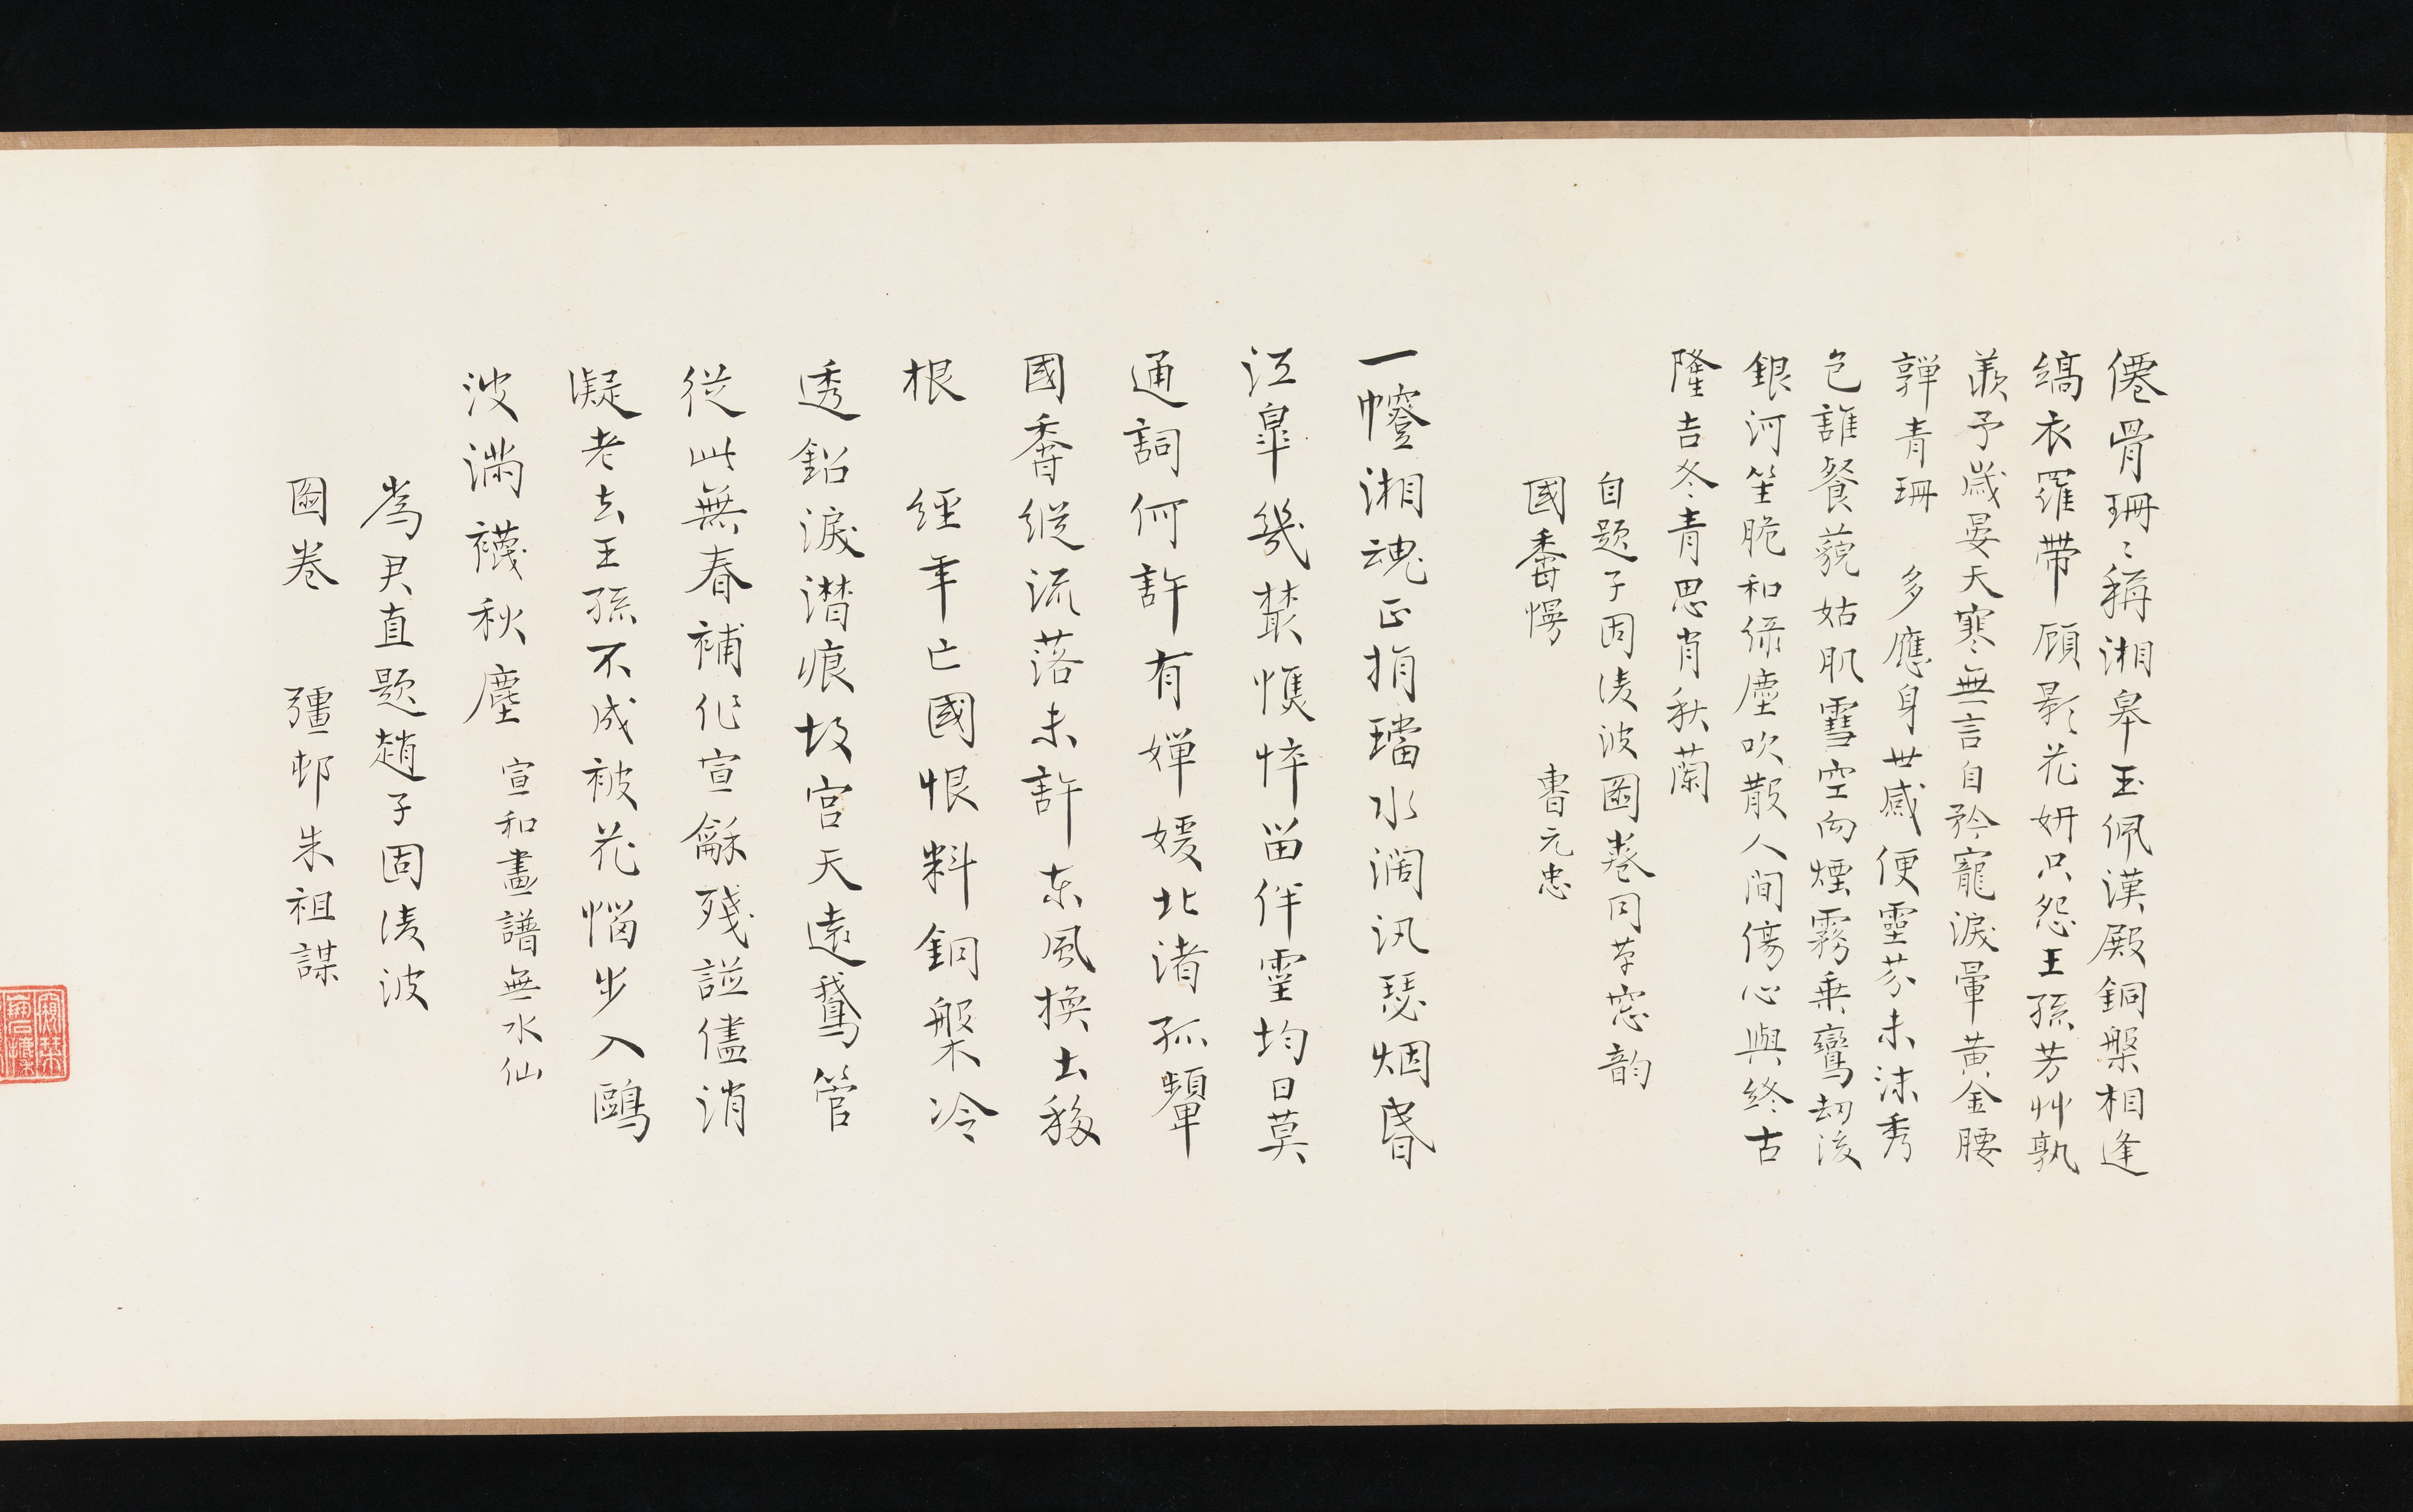 僊骨珊〻稱湘皋玉佩漢殿銅槃相逢
縞衣羅帶顧影花妍只怨王孫芳艸孰
羨予歲晏天寒無言自矜寵淚暈黃金腰
嚲青珊　多應身世感便靈芬未沬秀
色誰餐藐姑肌雪空向煙霧乘鸞劫後
銀河笙脆和ㄦ塵吹散人間傷心與終古
隆吉冬青思肖秋蘭
自題子固凌波圖卷同草窓韵
國香慢　　曹元忠
一㡧湘魂正捐璫水闊汎瑟烟昏
江皋幾叢憔悴留伴靈均日莫
通詞何許有嬋媛北渚孤顰
國香縱流落未許東風換土移
根　經年亡國恨料銅槃冷
透鉛淚潛痕故宮天遠鵞管
從此無春補作宣龢殘譜儘消
凝老去王孫不成被花惱步入鷗
波滿襪秋塵 宣和畫譜無水仙
為君直題趙子固凌波
圖卷　彊邨朱祖謀